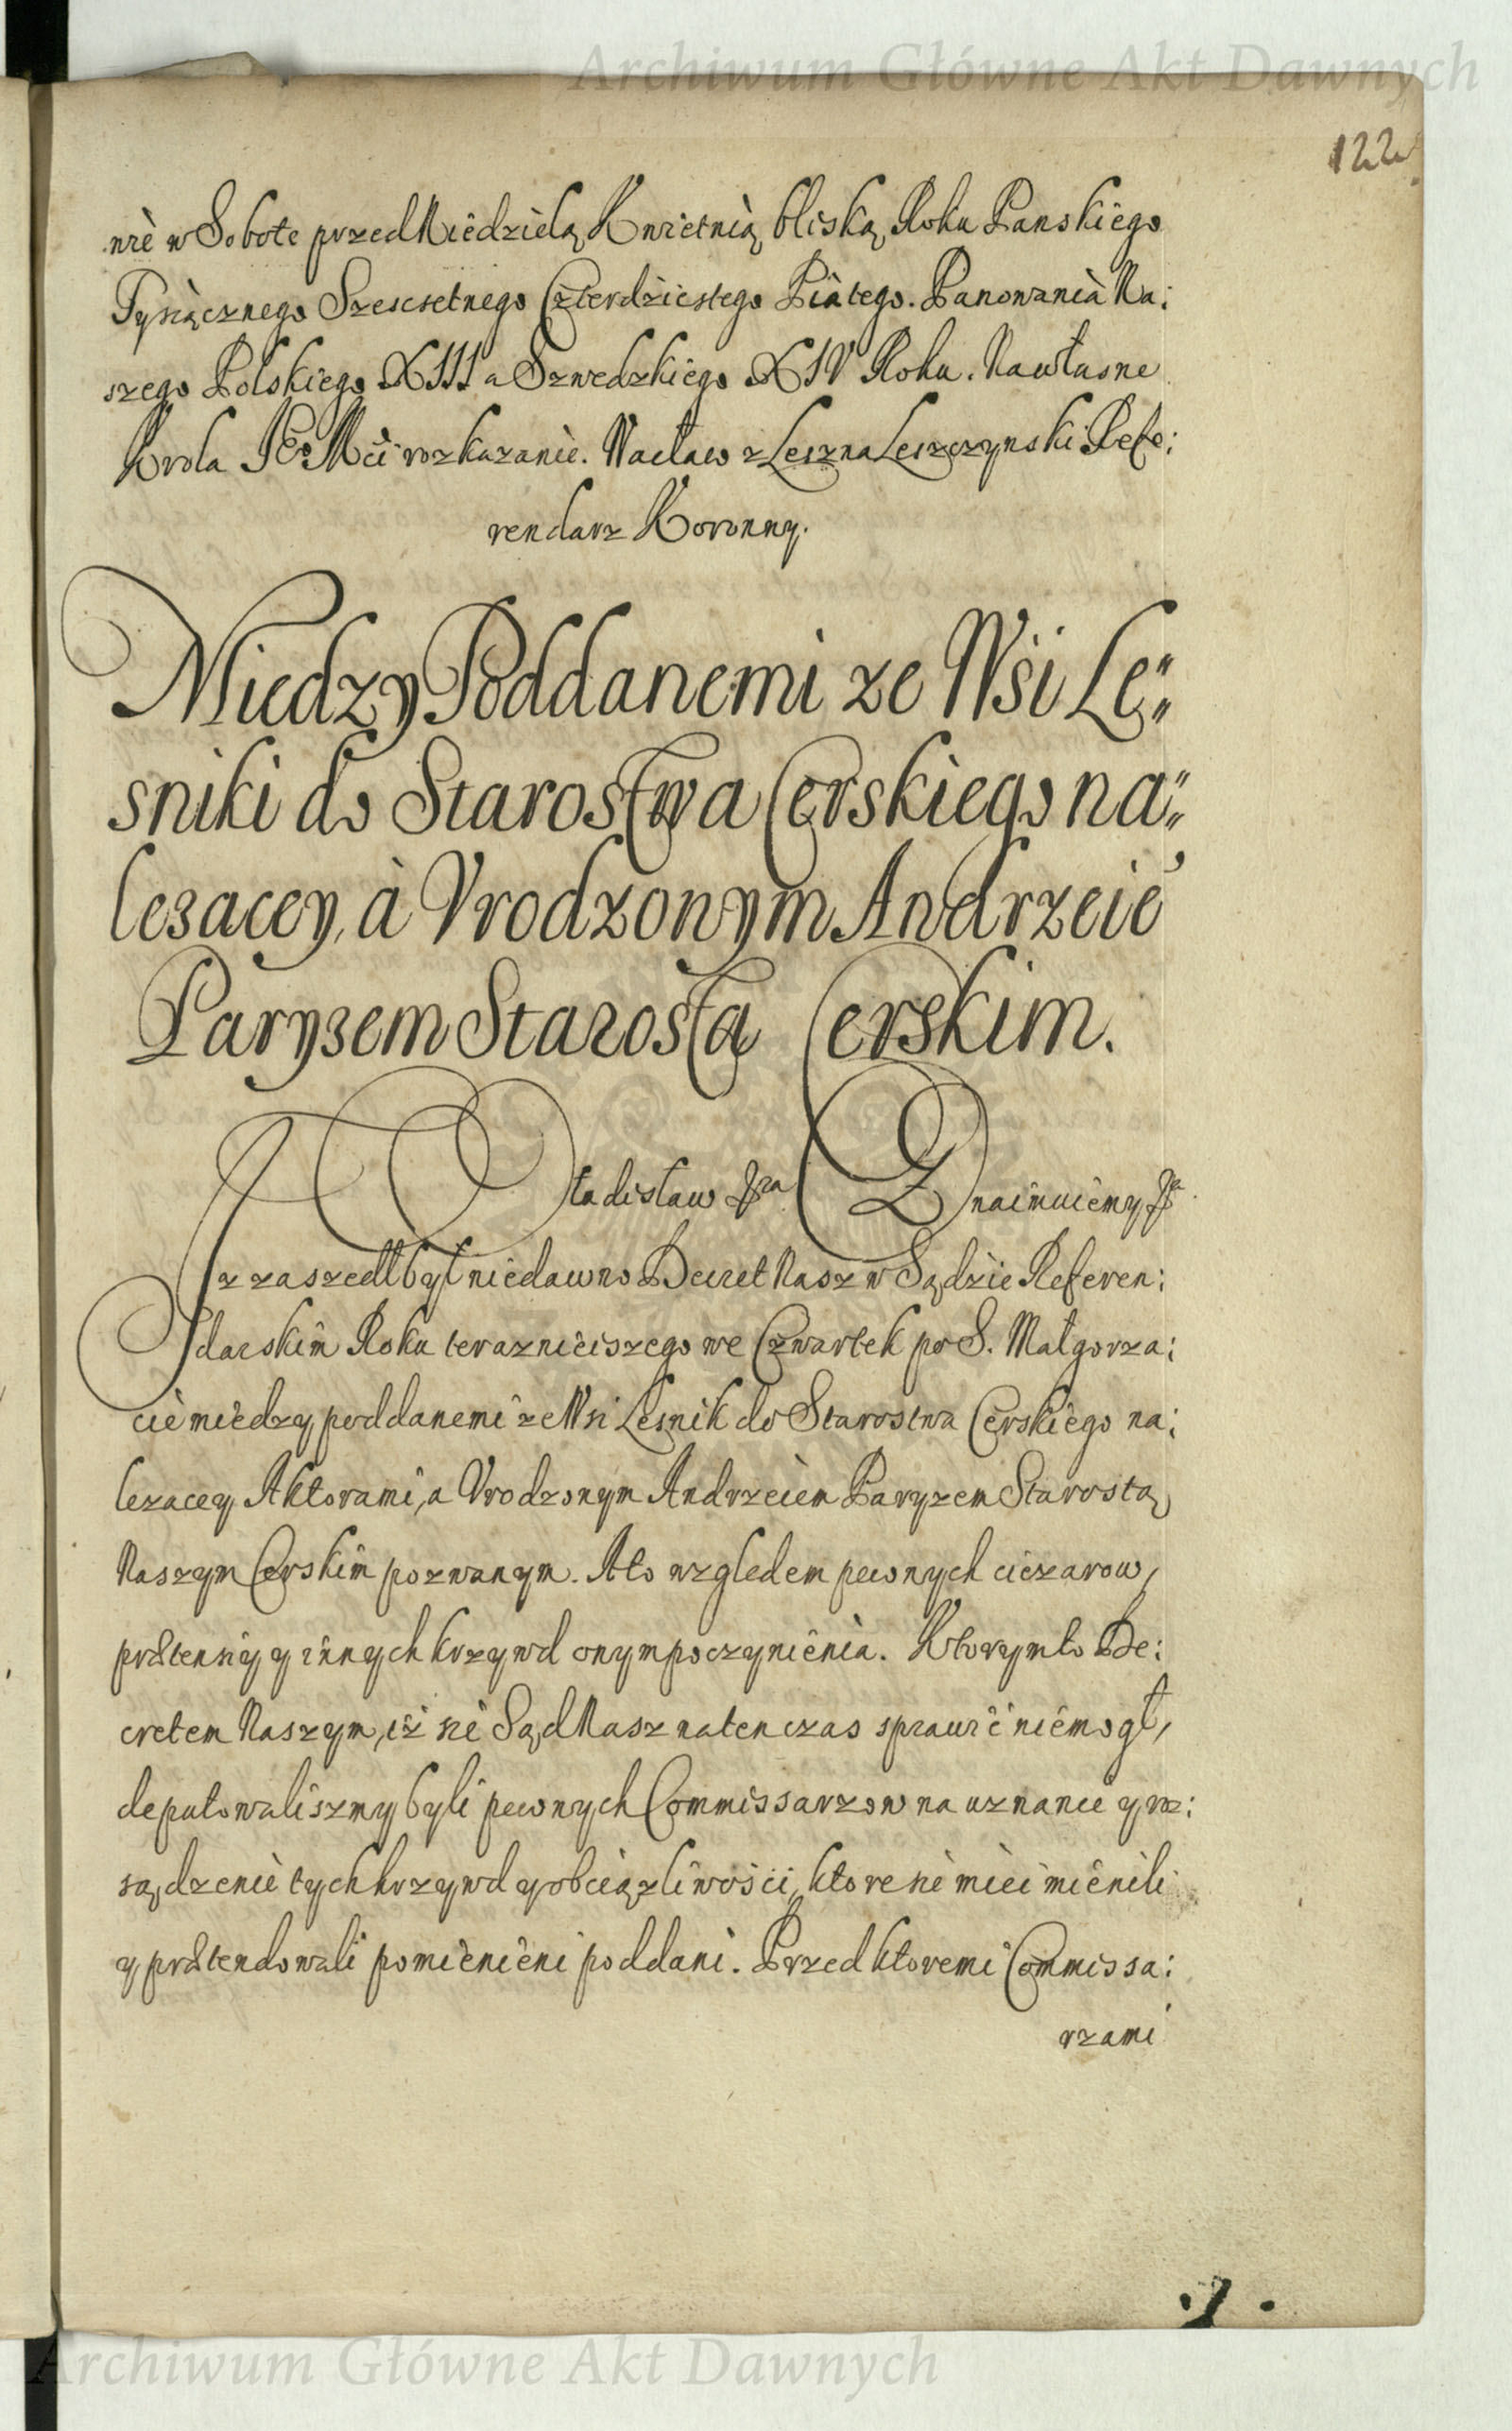 Archiwum Główne Akt Dawnych
122
nie w Sobote przed Niedzielą Kwietnią bliską Roku Panskiego
Tysiącznego Szescsetnego Czterdziestego Piątego. Panowania Na:
szego Polskiego XIII a Szwedzkiego XIV Roku. Na własne
Krola JEo Mci rozkazanie. Wacław z Leszna Leszczynski Refe:
rendarz Koronny.
Miedzy Poddanemi ze Wsi Le:
sniki do Starostwa Cerskiego na:
lezacey, à Vrodzonym Andrzeie
Paryzem Starostą Cerskim.
Wladisław &ra Znaimuiemy &a.
Iz zaszedł był niedawno Decret Nasz w Sądzie Referen:
darskim Roku teraznieiszego we Czwartek po S. Małgorza:
cie miedzy poddanemi ze Wsi Lesnik do Starostwa Cerskiego na:
lezacey Aktorami, a Vrodzonym Andrzeiem Paryzem Starostą
Naszym Cerskim pozwanym. A to wzgledem pewnych ciezarow,
prætensiy y innych krzywd onym poczynienia. Ktorym to De:
cretem Naszym, iż sie Sąd Nasz natenczas sprawić niemogł,
deputowaliszmy byli pewnych Commissarzow na uznanie y roz:
sądzenie tych krzywd y obciązliwości, ktore sie mieć mienili
y prætendowali pomienieni poddani. Przed ktoremi Commissa:
rzami
Archiwum Główne Akt Dawnych